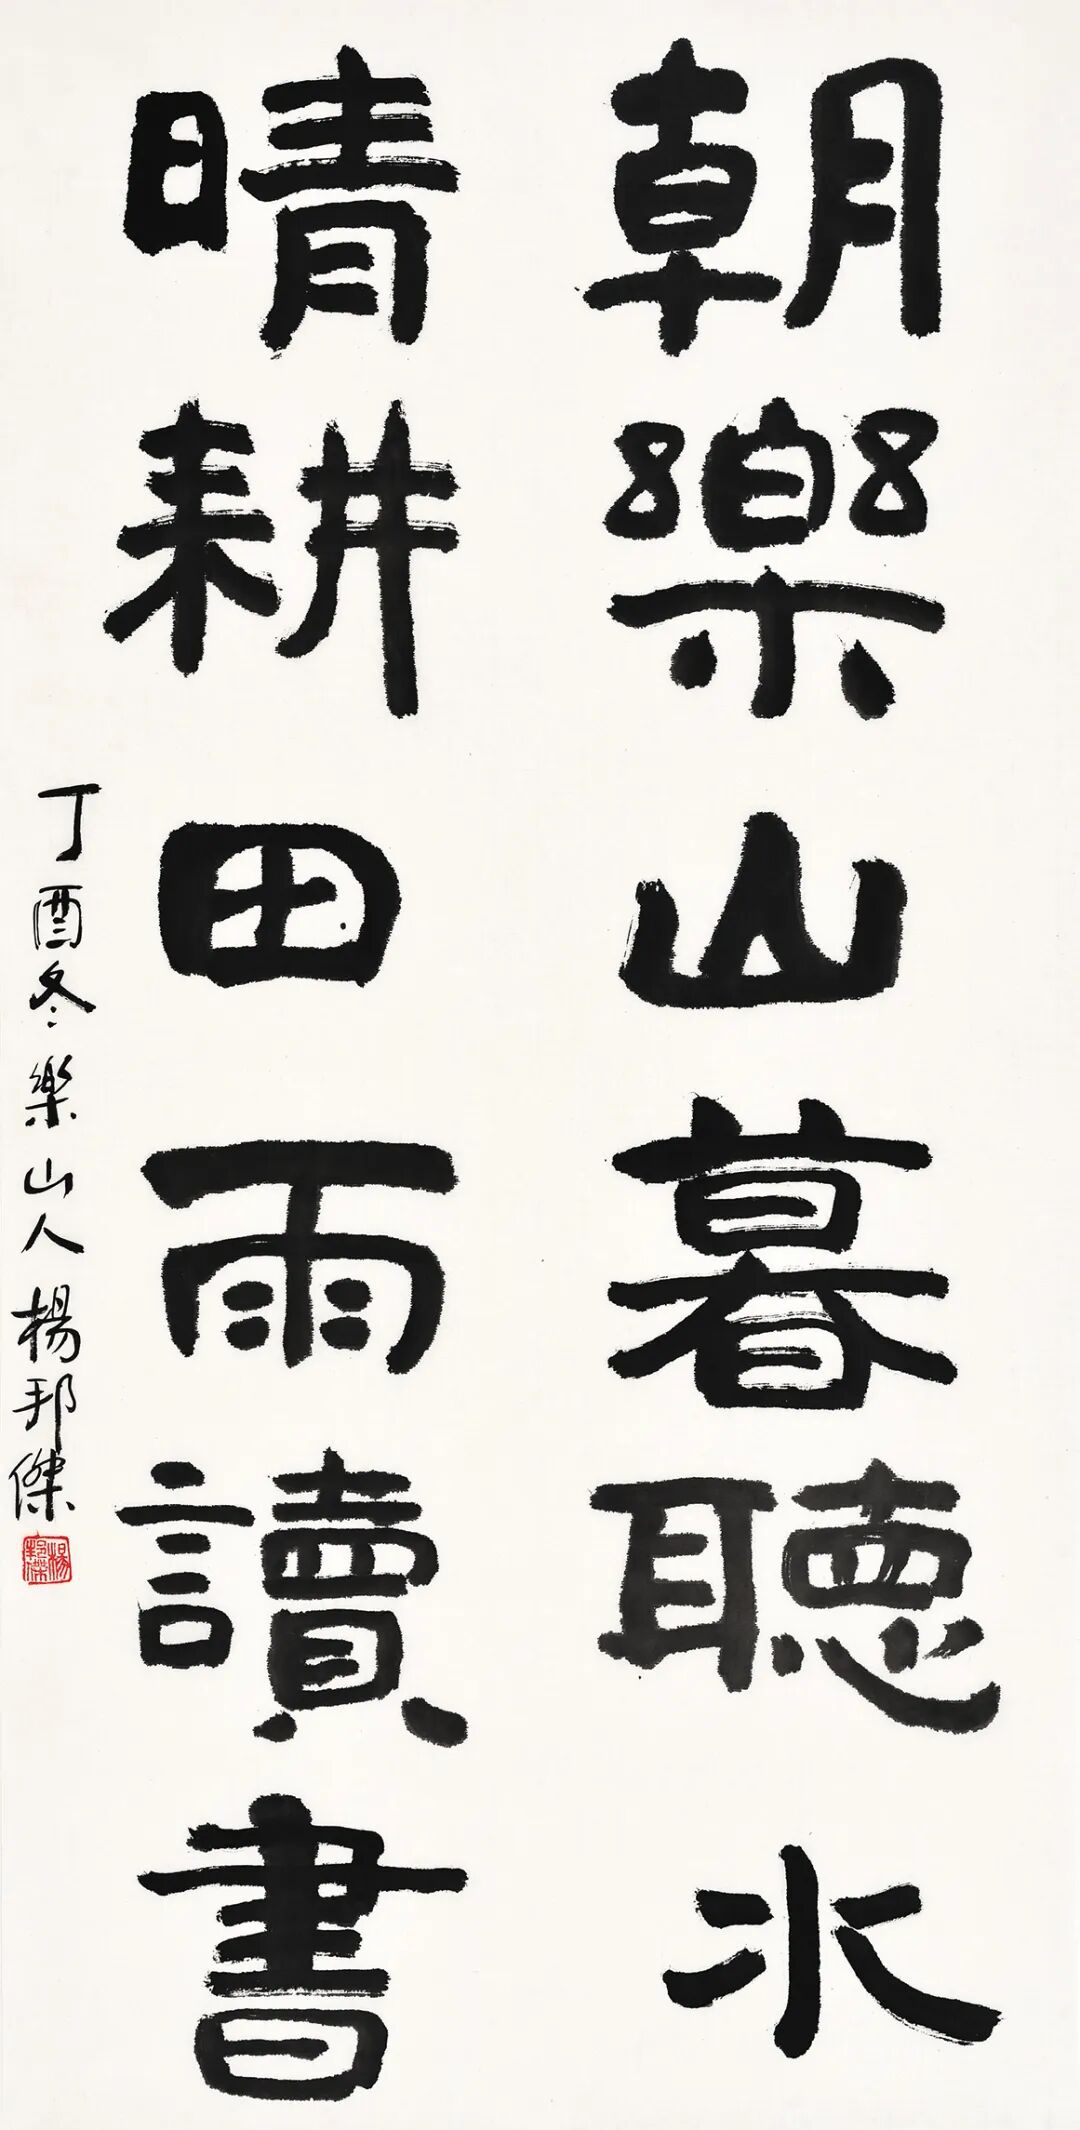 朝樂山暮聽水
晴耕田雨讀書
丁酉冬樂山人楊邦傑
楊邦傑